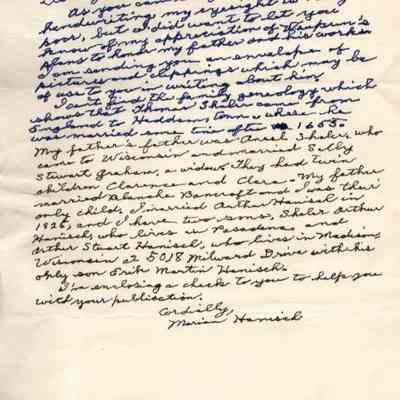 As you can
handwriting my eyesight is very
poor, but I did want to let you
know of my appreciation of Waupun's
plans to honor my father and his works.
I am sending you an envelope of
pictures and clippings which may be
of use to you in writing about him.
I can't find the family geneology which
shows that Thomas Shaler came from
England to Haddam, Conn. where he
was married some time after 1658.
My father's father was Ansel Shaler, who
came to Wisconsin and married Sally
Stewart Graham, a widow. They had twin
children Clarence and Clara. My father
married Blanche Bancroft and I was their
only child. I married Arthur Hanisch in
1926, and I have two sons, Shaler Arthur
Hanisch, who lives in Pasadena and
Arthur Stuart Hanisch, who lives in Madison,
Wisconsin at 5018 Milward Drive with his
only son Erik Martin Hanisch.
I'm enclosing a check to you to help you
with your publication.
Cordially,
Marian Hanisch